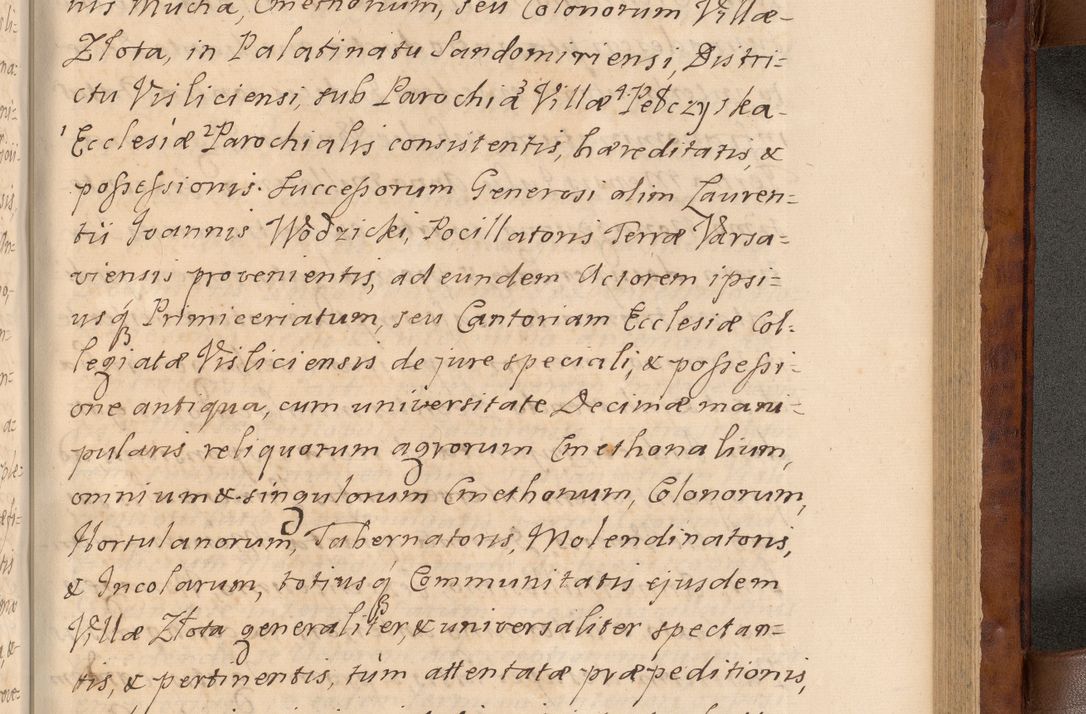 nis Mucha, Cmethonum, seu Colonorum Villæ
Złota, in Palatinatu Sandomiriensi, Distri=
ctu Visliciensi, sub Parochiâ ³ Villæ ⁴ Pełczyska
¹ Ecclesiæ ² Parochialis consistentis, hæreditatis, &
possessionis Successorum Generosi olim Lauren=
tii Joannis Wodzicki, Pocillatoris Terræ Varsa=
viensis provenientis, ad eundem Actorem ipsi=
usq́ Primiceriatum, seu Cantoriam Ecclesiæ Col=
legiatæ Visliciensis de jure speciali, & possessi=
one antiqua, cum universitate Decimæ mani=
pularis reliquorum agrorum Cmethonalium,
omnium & singulorum Cmethonum, Colonorum,
Hortulanorum, Tabernatoris, Molendinatoris,
& Incolarum, totiusq́ Communitatis ejusdem
Villæ Złota generaliter, & universaliter spectan=
tis, & pertinentis, tùm attentatæ præpeditionis,